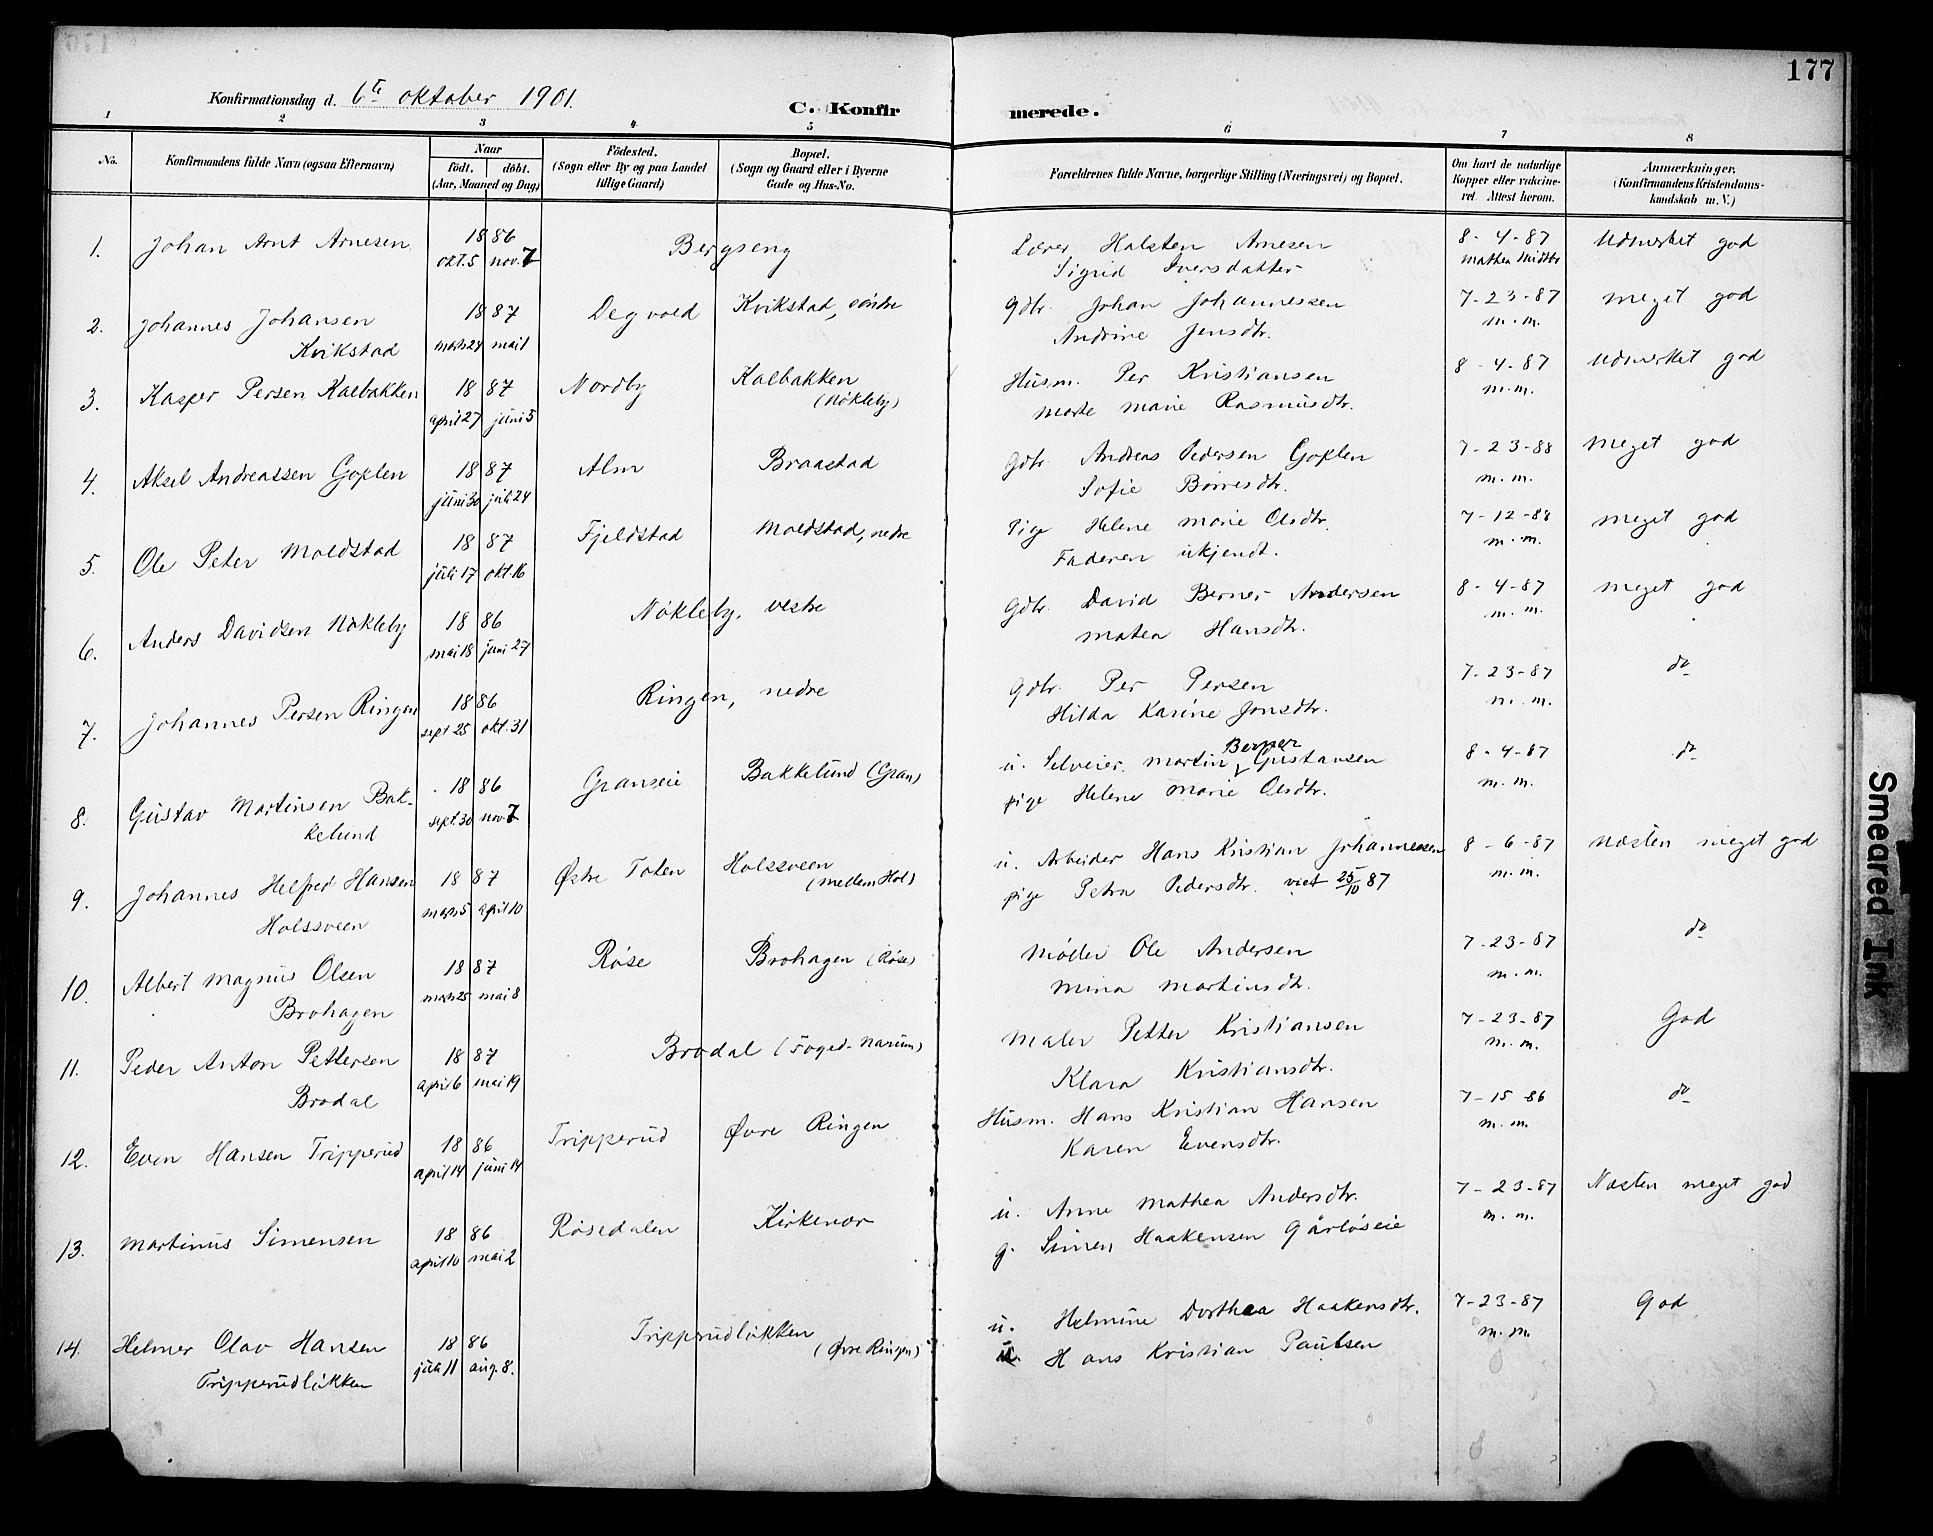 177
Konfirmationsdag d. 6te oktober 1901.
C. Konfirmerede.
1 2 3 4 5 6 7 8
No.
Konfirmandens fulde Navn (ogsaa Efternavn)
Naar
födt. döbt.
(Aar, Maaned og Dag)
Födested.
(Sogn eller By og paa Landet
tillige Gaard)
Bopæl.
(Sogn og Gaard eller i Byerne
Gade og Hus-No.
Forældrenes fulde Navne, borgerlige Stilling (Næringsvei) og Bopæl.
Om havt de naturlige
Kopper eller vakcine-
ret Attest herom.
Anmærkninger.
(Konfirmandens Kristendoms-
kundskab m. V.)
1. Johan Arnt Arnesen 1886 Bergseng Lærer Halsten Arnesen 8-4-87 Udmerket god
okt. 5 nov. 7 Sigrid Iversdatter mathea Midtbr
2. Johannes Johansen 1887 Degvold Kvikstad, söndre Gdbr. Johan Johannessen 7-23-87 meget god
Kvikstad mars 24 mai 1 Andrine Jensdtr. m.m.
3. Kasper Persen Kalbakken 1887 Nordby Kalbakken Husm. Per Kristiansen 8-4-87 Udmerket god
april 27 juni 5 (Nökleby) Marte Marie Rasmusdtr. m.m.
4. Aksel Andreassen Goplen 1887 Alm Braastad Gdbr Andreas Pedersen Goplen 7-23-88 meget god
juni 30 juli 24 Sofie Börresdtr. m.m.
5. Ole Peter Moldstad 1887 Fjeldstad Moldstad, nedre Pige Helene Marie Olsdtr. 7-12-88 meget god
juli 17 okt. 16 Faderen ukjendt. m.m.
6. Anders Davidsen Nökleby 1886 Nökleby, vestre Gdbr. David Berner Andersen 8-4-87 meget god
mai 18 juni 27 Matea Hansdtr. m.m.
7. Johannes Persen Ringen 1886 Ringen, nedre Gdbr. Per Persen 7-23-87 do
sept 25 okt. 31 Hilda Karine Jonsdtr. m.m.
8. Gustav Martinsen Bak- 1886 Granseie Bakkelund (Gran) u. Selveier. Martin Berner Gustavsen 8-4-87 do
kelund sept. 30 nov. 7 pige Helene Marie Olsdtr. m.m.
9. Johannes Helfred Hansen 1887 Østre Toten Holssveen u. Arbeider Hans Kristian Johannessen 8-6-87 Næsten meget god
Holssveen mars 5 april 10 (mellem Hol) pige Petra Pedersdtr. viet 25/10 87 m.m.
10. Albert Magnus Olsen 1887 Røse Brohagen (Røse) Møller Ole Andersen 7-23-87 do
Brohagen mars 25 mai 8 Mina Martinsdtr. m.m.
11. Peder Anton Pettersen 1887 Brodal (Foged-Narum) Maler Petter Kristiansen 7-23-87 God
Brodal april 6 mai 19 Klara Kristiansdtr. m.m.
12. Even Hansen Tripperud 1886 Tripperud Øvre Ringen Husm. Hans Kristian Hansen 7-15-86 do
april 14 juni 14 Karen Evensdtr. m.m.
13. Martinus Simensen 1886 Røsedalen Kirkenær u. Anne Mathea Andersdtr. 7-23-87 Næsten meget god
april 10 mai 2 g. Simen Haakensen Gårløseie m.m.
14. Helmer Olav Hansen 1886 Tripperudløkken u. Helmine Dorthea Haakensdtr. 7-23-87 God
Tripperudløkken juli 11 aug. 8. (Øvre Ringen) u. Hans Kristian Paulsen m.m.
Smeared Ink